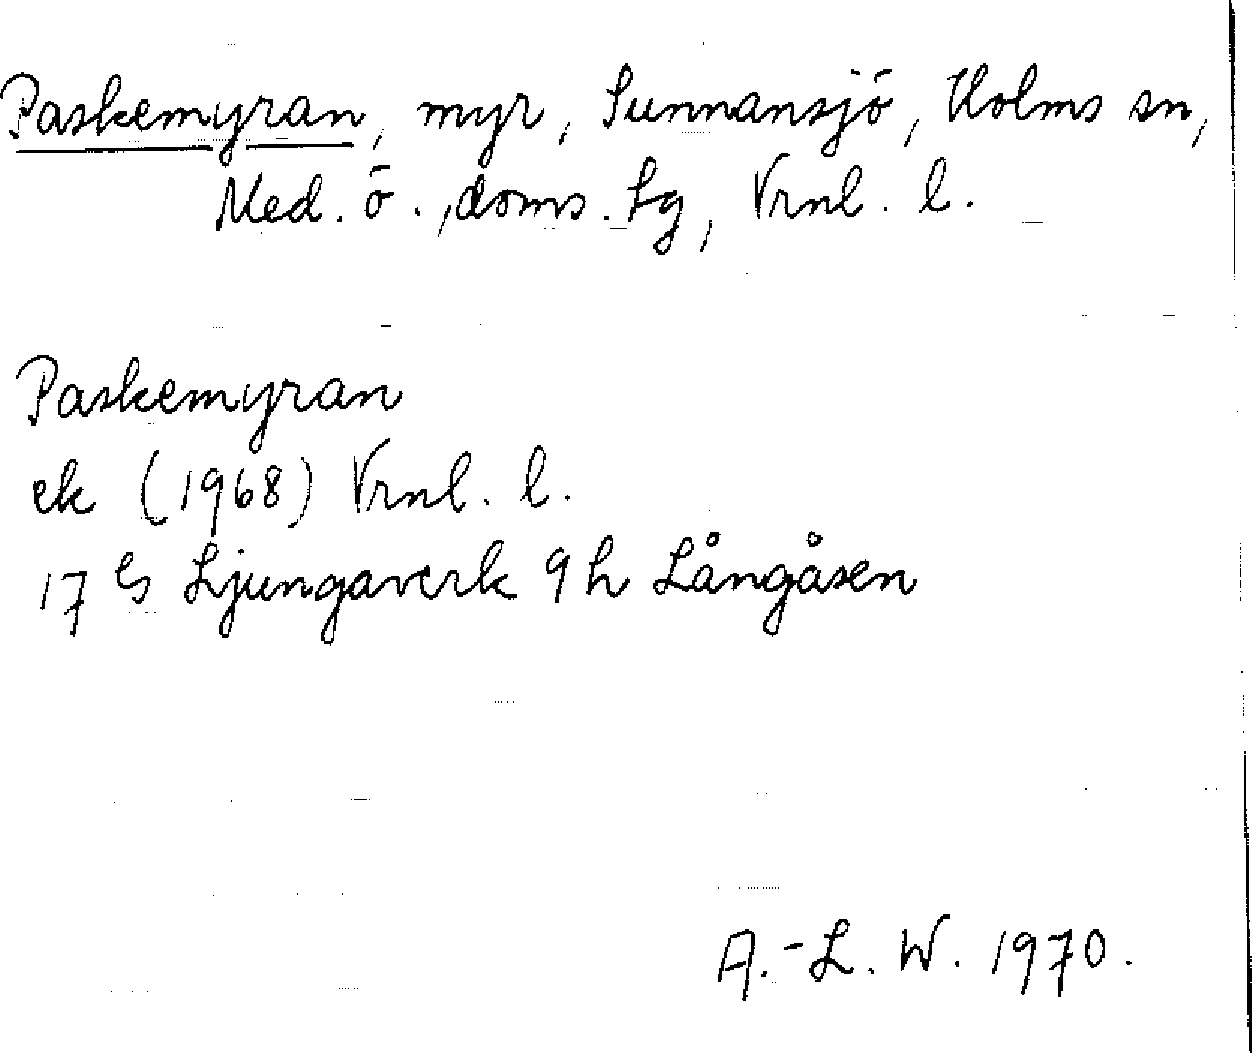 Paskemyran, myr, Sunnansjö, Holms sn,
Med. ö., doms. hg, Vrnl. l.
Paskemyran
ek (1968) Vrnl. l.
17 G Ljungaverk 9 h Långåsen
A.-L. W. 1970.